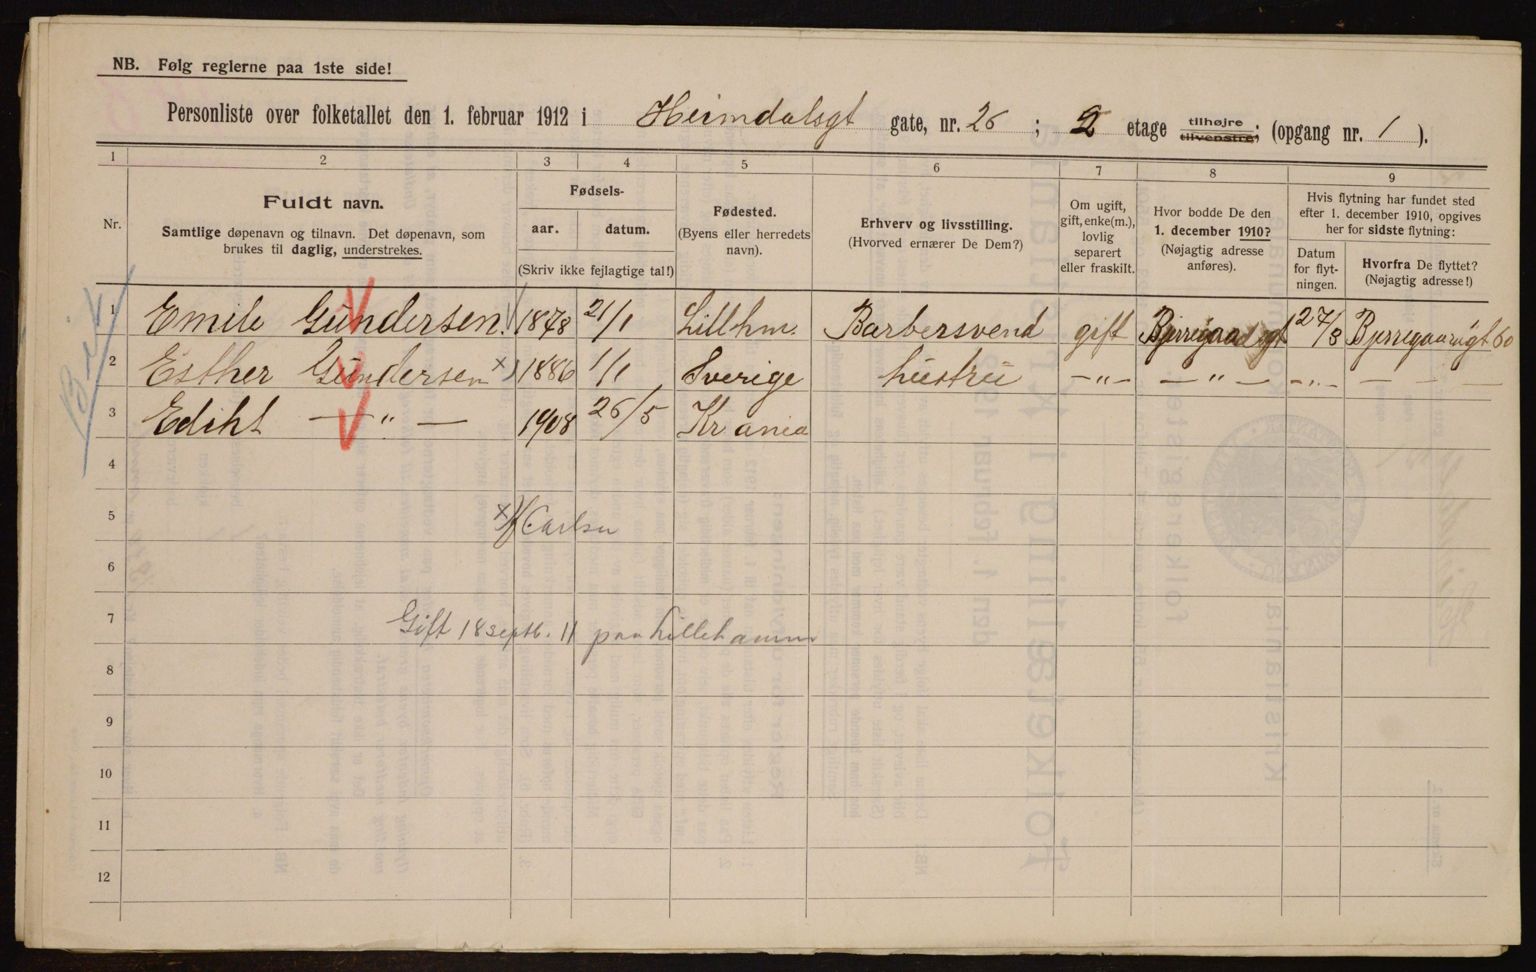 NB. Følg reglerne paa 1ste side!
Personliste over folketallet den 1. februar 1912 i Heimdalsgt gate, nr. 26 ; 2 etage tilhøjre tilvenstre; (opgang nr. 1 ).
1 2 3 4 5 6 7 8 9
Nr.
Fuldt navn.
Samtlige døpenavn og tilnavn. Det døpenavn, som
brukes til daglig, understrekes.
Fødsels-
aar. datum.
(Skriv ikke fejlagtige tal!)
Fødested.
(Byens eller herredets
navn).
Erhverv og livsstilling.
(Hvorved ernærer De Dem?)
Om ugift,
gift, enke(m.),
lovlig
separert
eller fraskilt.
Hvor bodde De den
1. december 1910?
(Nøjagtig adresse
anføres).
Hvis flytning har fundet sted
efter 1. december 1910, opgives
her for sidste flytning:
Datum
for flyt-
ningen.
Hvorfra De flyttet?
(Nøjagtig adresse!)
1 Emile Gundersen 1878 21/1 Lillhm. Barbersvend gift Bjerregaardsgt 27/8 Bjerregaardsgt 60
2 Esther Gundersen x) 1886 1/1 Sverige hustru —"— — " — —"— — — —
3 Ediht — " — 1908 26/5 Krania
4
5 x) f. Carlsen
6
7 Gift 18 septb. 11 paa Lillehammer
8
9
10
11
12